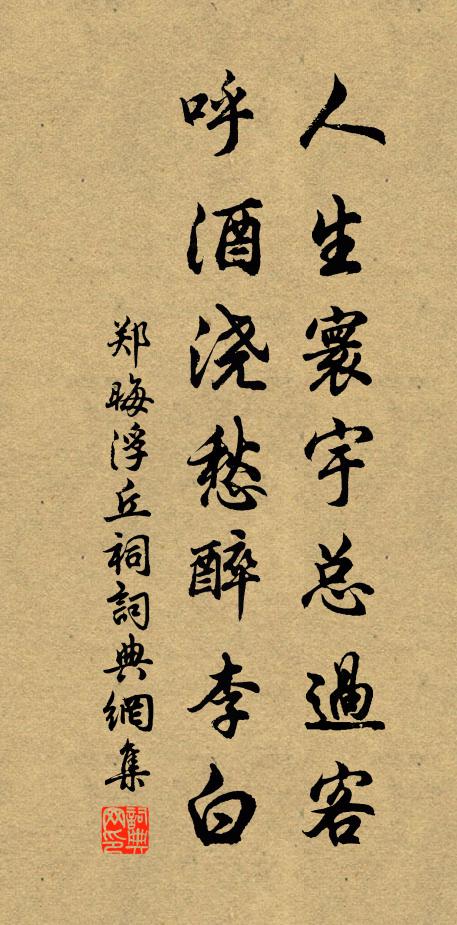 人生寰宇总過客
呼酒浇愁醉李白
郑晦浮丘祠詞典網集
詞典网印